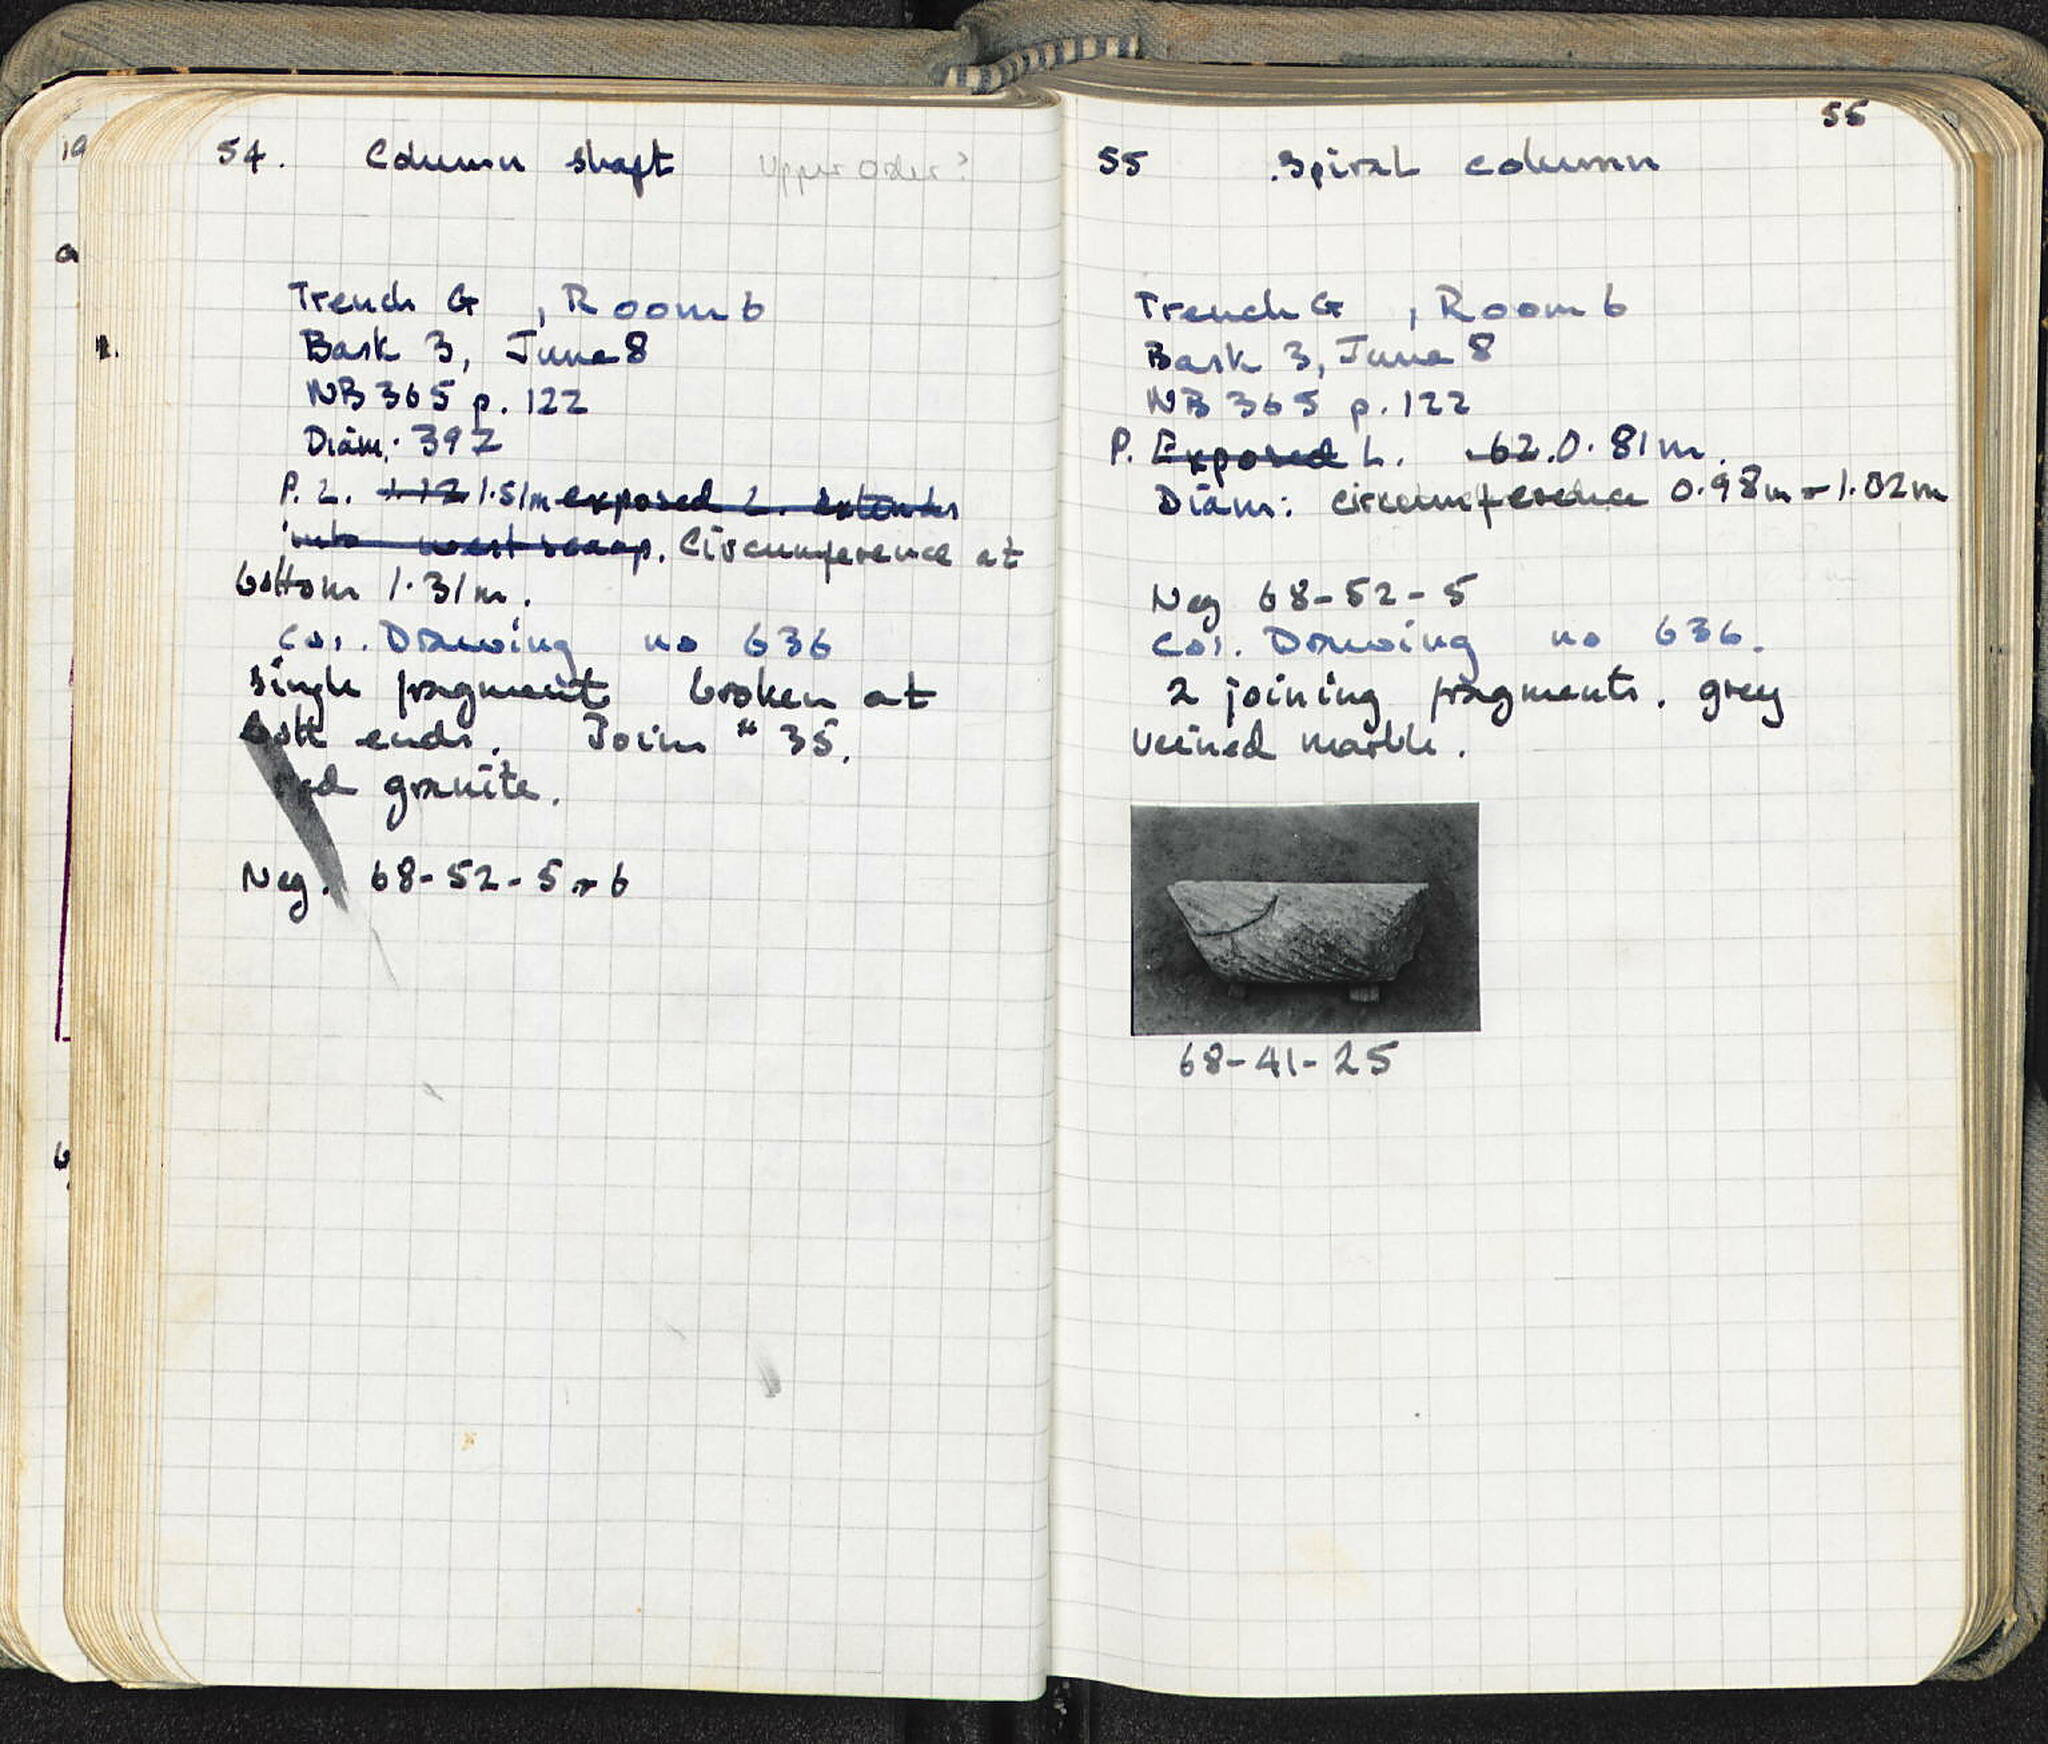 54. Column shaft Upper Order?
Trench G , Room 6
Bask 3, June 8
NB 365 p. 122
Diam: 392
P. L. 1.12 1.51m exposed L. extends
into west scarp. Circumference at
bottom 1.31m.
Cor. Drawing no 636
single fragment broken at
both ends. Joins # 35.
red granite.
Neg. 68-52-5+6
55
55 Spiral column
Trench G , Room 6
Bask 3, June 8
NB 365 p. 122
P. Exposed L. .62. 0.81m.
Diam: circumference 0.98m - 1.02m
Neg 68-52-5
Cor. Drawing no 636.
2 joining fragments. grey
veined marble.
68-41-25